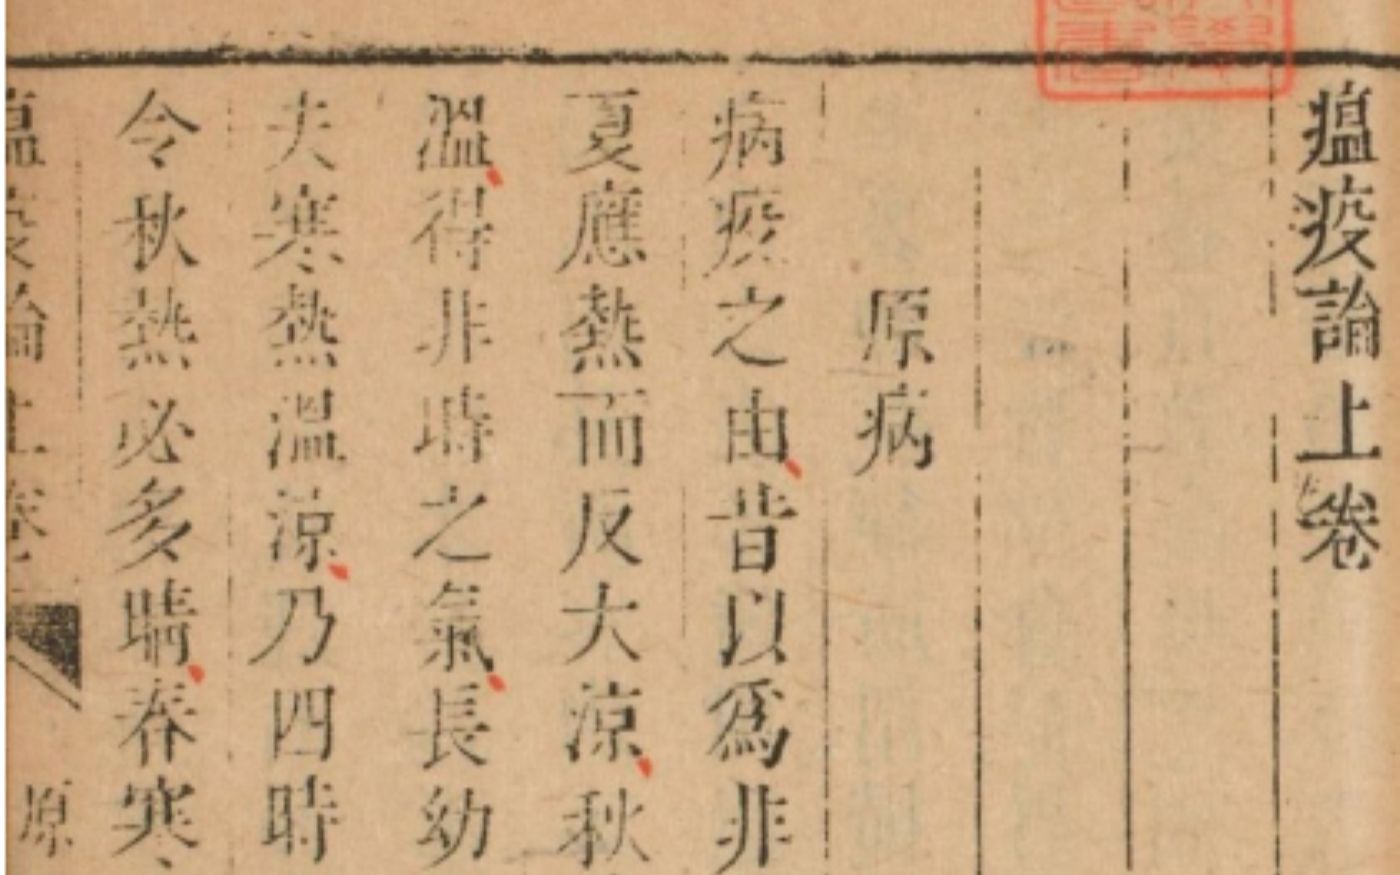 瘟疫論上卷
原病
病疫之由昔以為非
夏應熱而反大涼秋
溫得非時之氣長幼
夫寒熱溫涼乃四時
令秋熱必多晴春寒
瘟疫論上卷
原